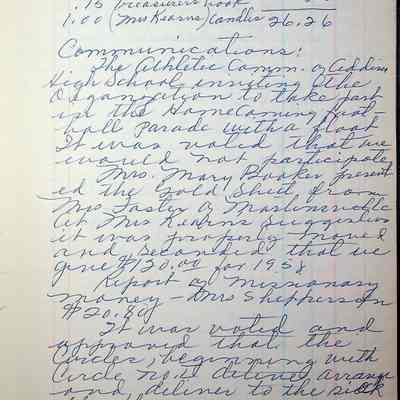 .75 Treasurers book
1.00 (Mrs Kearns) Candles 26.26
Communications:
The Athletic Comm. of Addison
High School inviting the
Organization to take part
in the Homecoming foot-
ball Parade with a float
It was voted that we
would not participate.
Mrs. Mary Booker present-
ed the Gold Sheet from
Mrs Foster of Martinsville
At Mrs Kearns Suggestion
it was properly moved
and seconded that we
give $120.00 for 1958
Report of Missionary
money - Mrs Shepperson
$20.80
It was voted and
approved that the
Circles, beginning with
Circle no. 1 arrange
and, deliver to the sick